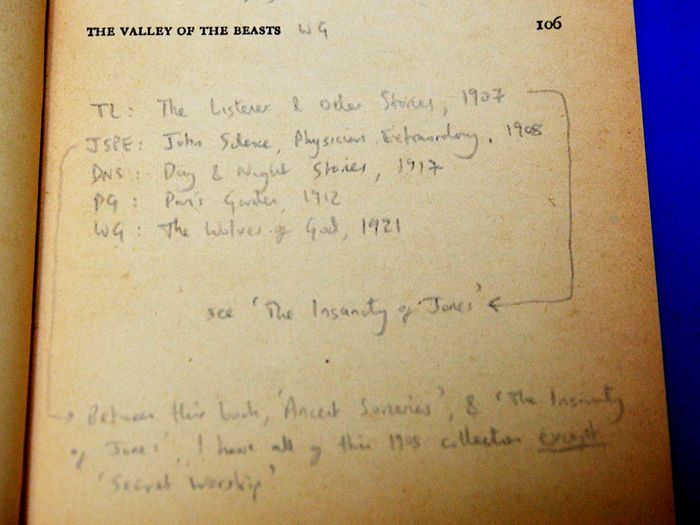 THE VALLEY OF THE BEASTS WG 106
TL: The Listener & other Stories, 1907
JSPE: John Silence, Physician Extraordinary. 1908
DNS: Day & Night Stories, 1917
PG: Pan's Garden, 1912
WG: The Wolves of God, 1921
see 'The Insanity of Jones'
Between this book, 'Ancient Sorceries', & 'The Insanity
of Jones', I have all of this 1908 collection except
'Secret Worship'